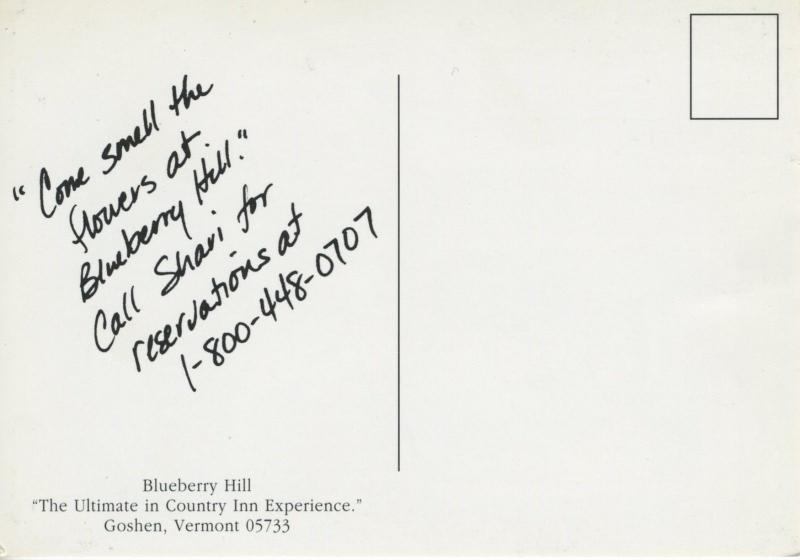 "Come smell the
flowers at
Blueberry Hill."
Call Shari for
reservations at
1-800-448-0707
Blueberry Hill
“The Ultimate in Country Inn Experience.”
Goshen, Vermont 05733